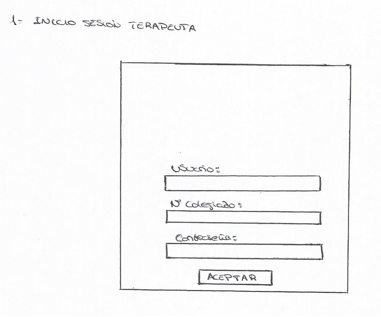 1- INICIO SESIÓN TERAPEUTA
Usuario:
Nº Colegiado:
Contraseña:
ACEPTAR